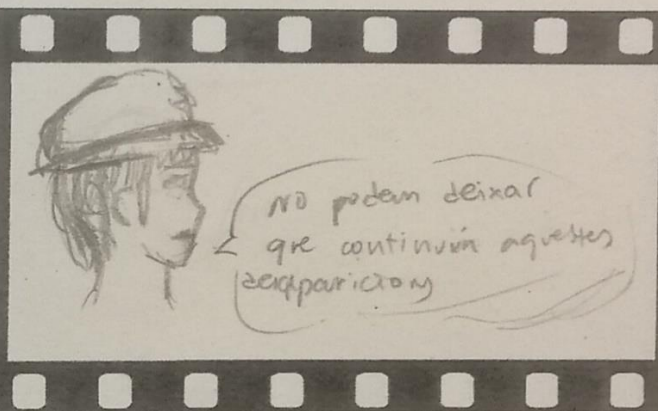 No podem deixar
que continuïn aquestes
desaparicions